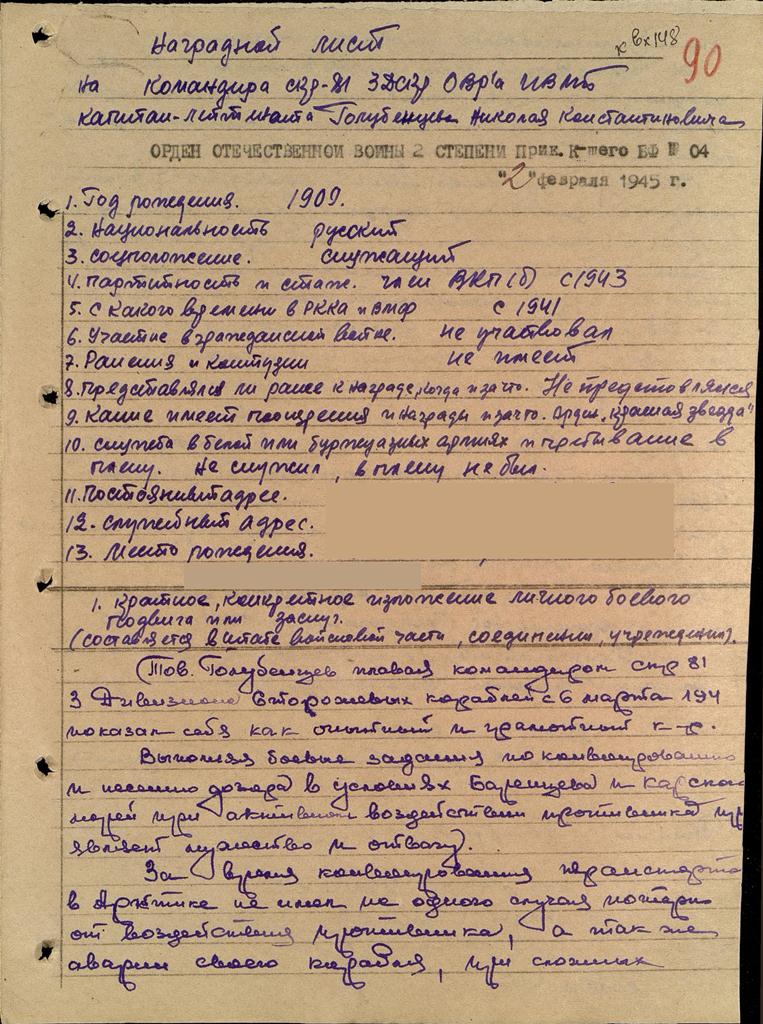 Наградной лист
к вх148
90
на Командира скр-81 3Дскр ОВР'а
капитан-лейтенанта Голубенцева Николая Константиновича
ОРДЕН ОТЕЧЕСТВЕННОЙ ВОЙНЫ 2 СТЕПЕНИ Прик. К-щего БФ № 04
"2" февраля 1945 г.
1. Год рождения. 1909.
2. Национальность русский
3. Соцположение. служащий
4. Партийность и стаж. член ВКП(б) с 1943
5. С какого времени в РККА и ВМФ с 1941
6. Участие в гражданской войне. не участвовал
7. Ранения и контузии не имеет
8. Представлялся ли ранее к награде, когда и за что. Не представлялся
9. Какие имеет поощрения и награды и за что. Орден "Красная звезда"
10. служба в белой или буржуазных армиях и пребывание в
плену. Не служил, в плену не был.
11. Постоянный адрес.
12. служебный адрес.
13. Место рождения.
1. Краткое, конкретное изложение личного боевого
подвига или заслуг.
(составляется в штабе войсковой части, соединении, учреждении).
Тов. Голубенцев плавая командиром скр 81
3 Дивизиона Сторожевых кораблей с 6 марта 194
показал себя как опытный и грамотный к-р.
Выполняя боевые задания по конвоированию
и несению дозора в условиях Баренцева и Карского
морей при активном воздействии противника пр
являет мужество и отвагу.
За время конвоирования транспорто
в Арктике не имел не одного случая потери
от воздействия противника, а так же
аварии своего корабля, при сложных